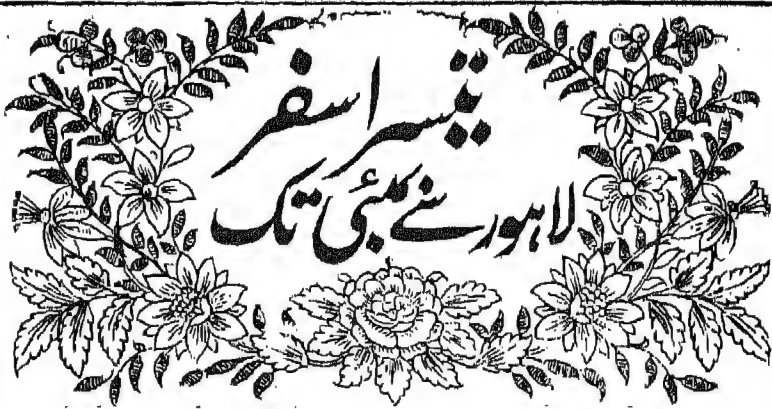 تیسرا سفر
لاہور سے بمبئی تک